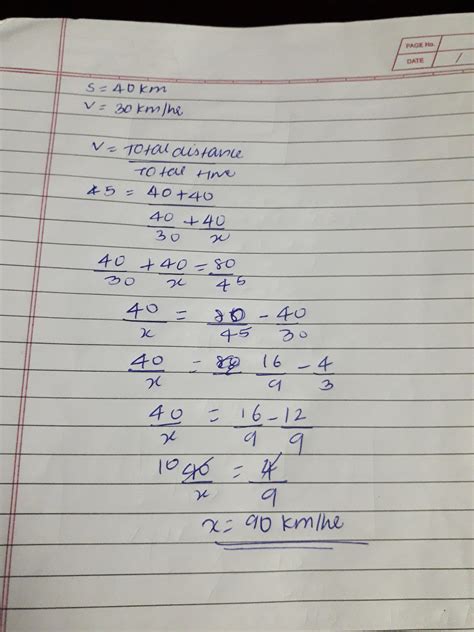 PAGE No.
DATE /
S = 40 km
V = 30 km/hr
V = Total distance / Total time
45 = 40+40 / (40/30 + 40/x)
40/30 + 40/x = 80/45
40/x = 80/45 - 40/30
40/x = 16/9 - 4/3
40/x = 16/9 - 12/9
10 40/x = 4/9
x = 90 km/hr